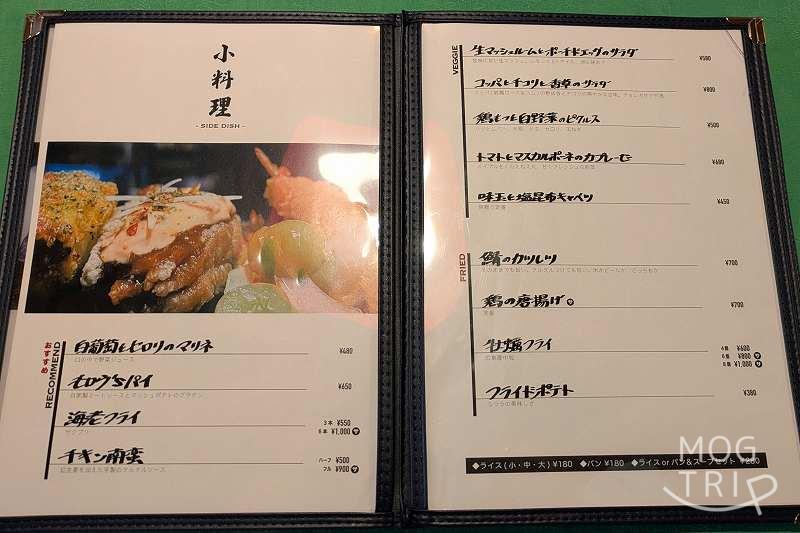 小料理
- SIDE DISH -
おすすめ
RECOMMEND
白葡萄とセロリのマリネ ¥480
口の中で野菜ジュース
セロウ'Sパイ ¥650
自家製ミートソースとマッシュポテトのグラタン
海老フライ 3本 ¥550
6本 ¥1,000
チキン南蛮 ハーフ ¥500
フル ¥900
VEGGIE
生マッシュルームとポーチドエッグのサラダ ¥580
コッパとチコリと香草のサラダ ¥800
鶏もつと白野菜のピクルス ¥500
トマトとマスカルポーネのカプレーゼ ¥680
味玉と塩昆布キャベツ ¥450
FRIED
鯖のカツレツ ¥700
鶏の唐揚げ ¥700
定番
牡蠣フライ 4個 ¥600
6個 ¥800
8個 ¥1,000
広島産中粒
フライドポテト ¥380
◆ライス (小・中・大) ¥180 ◆パン ¥180 ◆ライス or パン&スープセット ¥280
MOG
TRIP